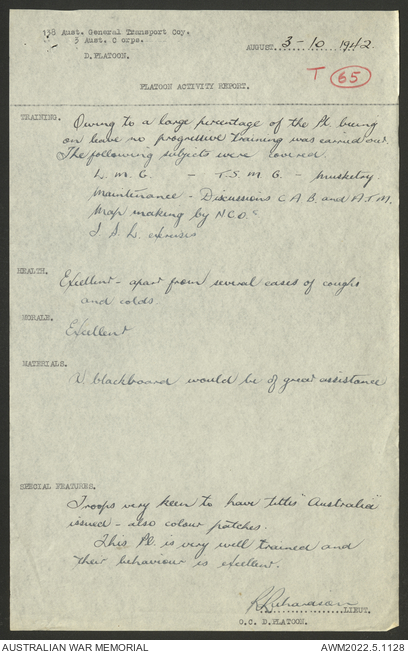 138 Aust. General Transport Coy.
3 Aust. Corps.
D. PLATOON.
AUGUST 3-10 1942
T 65
PLATOON ACTIVITY REPORT.
TRAINING. Owing to a large percentage of the Pl. being
on leave no progressive training was carried out.
The following subjects were covered
L M G. - T.S.M.G. - Musketry
Maintenance - Discussions C.A.B. and A.T.M.
Map making by N.C.O.s
HEALTH. Excellent - apart from several cases of coughs
and colds.
MORALE. Excellent
MATERIALS.
blackboard would be of great assistance
SPECIAL FEATURES.
Troops very keen to have titles "Australia"
issued - also colour patches.
This Pl. is very well trained and
their behaviour is excellent.
R Richardson LIEUT.
O.C. D.PLATOON.
AUSTRALIAN WAR MEMORIAL
AWM2022.5.1128